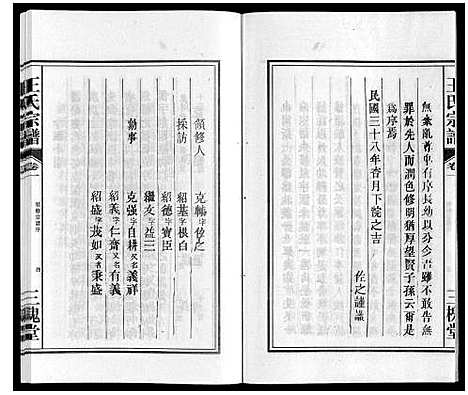 王氏宗譜
卷一
三槐堂
無紊亂尊卑有序長幼以分少吾雖不敢告無
罪於先人而潤色修明猶厚望賢子孫云爾是
為序焉
民國三十八年杏月下浣之吉
佐之謹識
領修人 克輔字佐之
採訪 紹基字根白
紹德字寶臣
繼友字益三
勷事 克强字自耕又名義祥
紹義字仁齋又名有義
紹盛字茂如又名秉盛
王氏宗譜
卷一
三槐堂